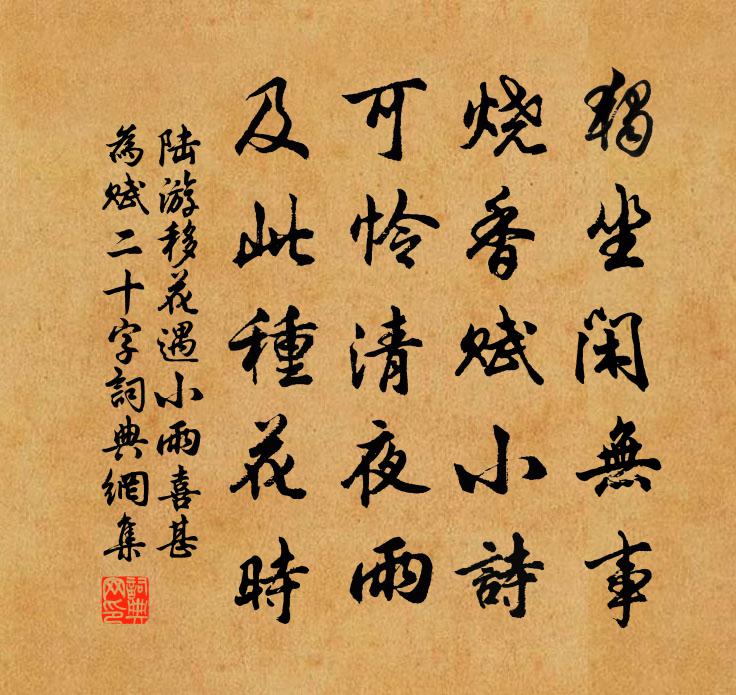 獨坐閑無事
燒香賦小詩
可怜清夜雨
及此種花時
陆游移花遇小雨喜甚
為賦二十字詞典網集
詞典
网印